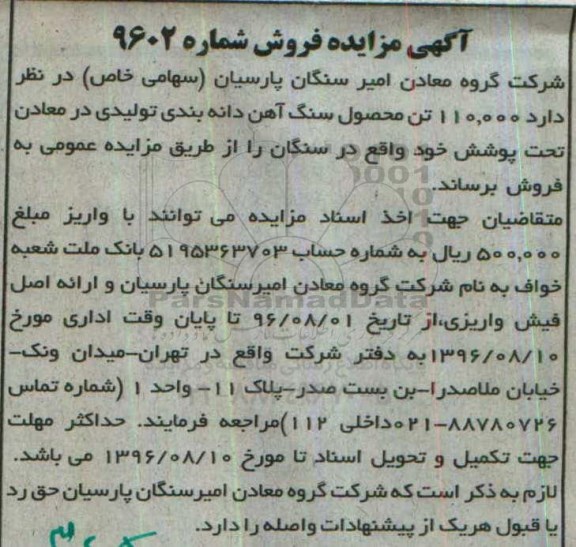 آگهی مزایده فروش شماره ۹۶۰۲
شرکت گروه معادن امیر سنگان پارسیان (سهامی خاص) در نظر
دارد ۱۱۰,۰۰۰ تن محصول سنگ آهن دانه بندی تولیدی در معادن
تحت پوشش خود واقع در سنگان را از طریق مزایده عمومی به
فروش برساند.
متقاضیان جهت اخذ اسناد مزایده می توانند با واریز مبلغ
۵۰۰,۰۰۰ ریال به شماره حساب ۵۱۹۵۳۶۳۷۰۳ بانک ملت شعبه
خواف به نام شرکت گروه معادن امیرسنگان پارسیان و ارائه اصل
فیش واریزی،از تاریخ ۹۶/۰۸/۰۱ تا پایان وقت اداری مورخ
۱۳۹۶/۰۸/۱۰به دفتر شرکت واقع در تهران-میدان ونک-
خیابان ملاصدرا-بن بست صدر-پلاک ۱۱- واحد ۱ (شماره تماس
۸۸۷۸۰۷۲۶-۰۲۱داخلی ۱۱۲)مراجعه فرمایند. حداکثر مهلت
جهت تکمیل و تحویل اسناد تا مورخ ۱۳۹۶/۰۸/۱۰ می باشد.
لازم به ذکر است که شرکت گروه معادن امیرسنگان پارسیان حق رد
یا قبول هریک از پیشنهادات واصله را دارد.
ParsNamadData